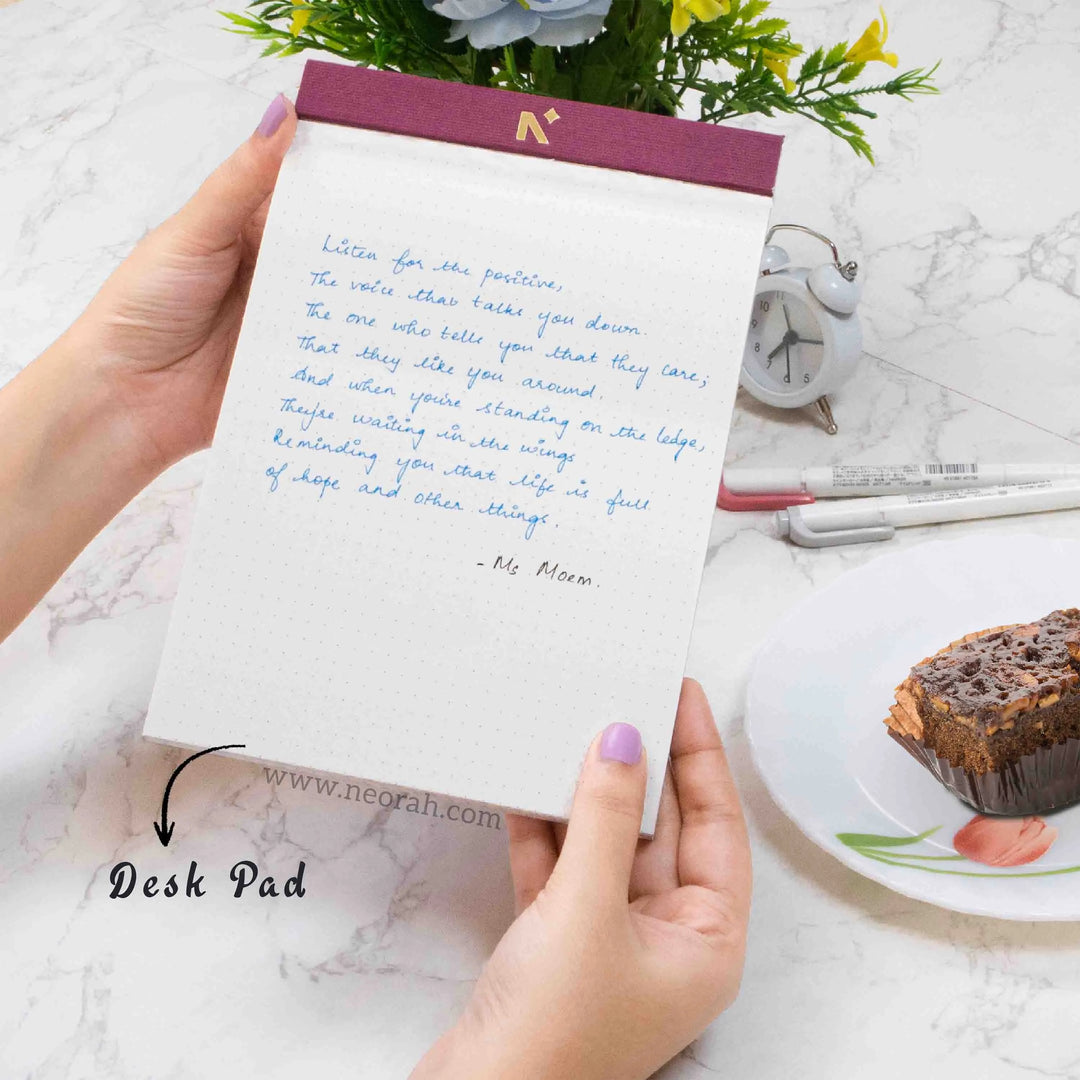 Listen for the positive,
The voice that talks you down.
The one who tells you that they care;
That they like you around.
And when you're standing on the ledge,
They're waiting in the wings
Reminding you that life is full
of hope and other things.
- Ms Moem.
www.neorah.com
Desk Pad